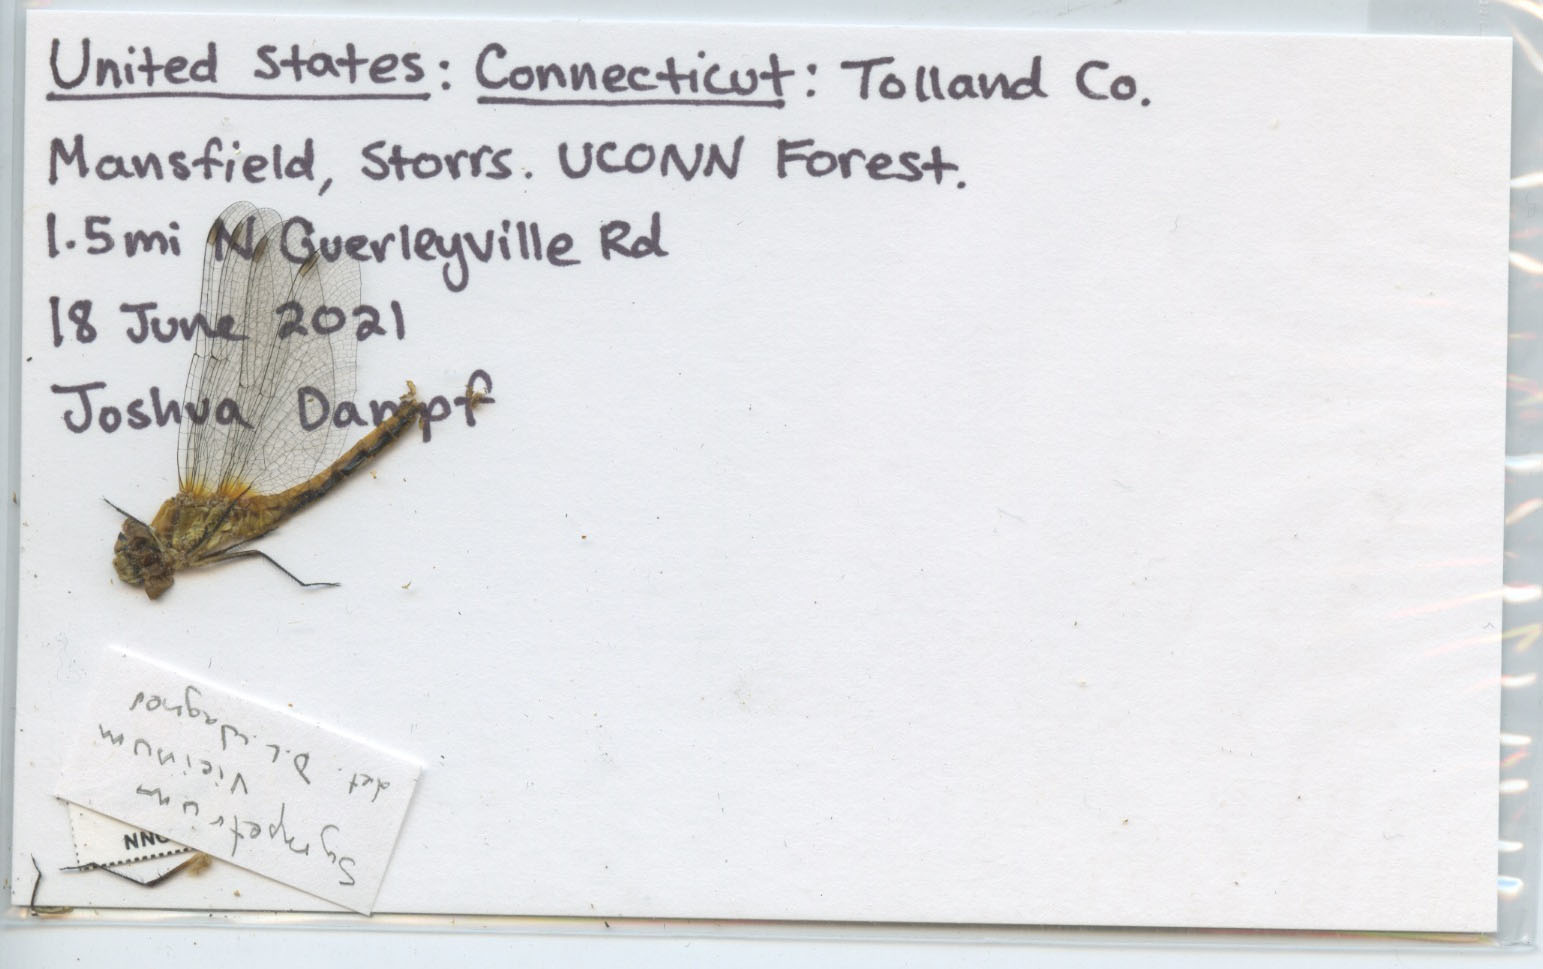 United States: Connecticut: Tolland Co.
Mansfield, Storrs. UCONN Forest.
1.5mi N Guerleyville Rd
18 June 2021
Joshua Dampf
Sympetrum
vicinum
det. D.L. Wagner